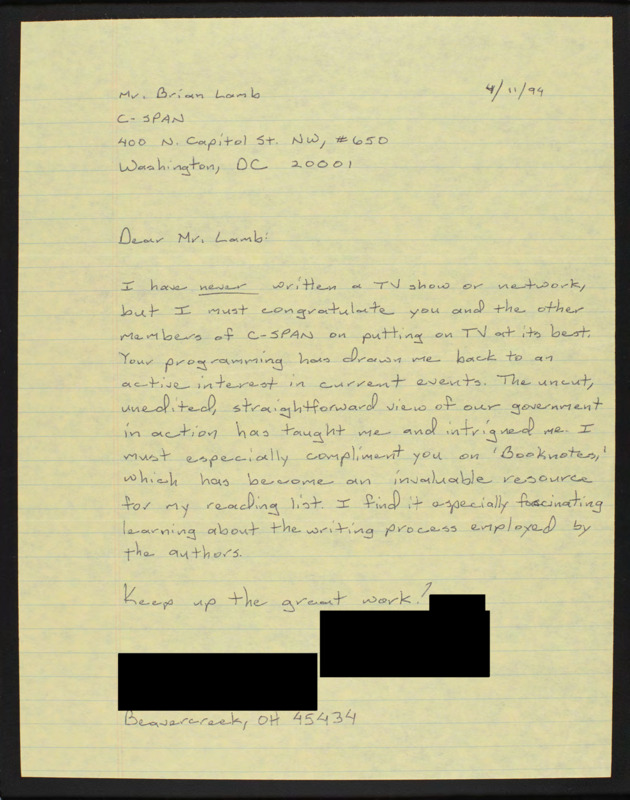 4/11/94
Mr. Brian Lamb
C-SPAN
400 N. Capitol St. NW, #650
Washington, DC 20001
Dear Mr. Lamb:
I have never written a TV show or network,
but I must congratulate you and the other
members of C-SPAN on putting on TV at its best.
Your programming has drawn me back to an
active interest in current events. The uncut,
unedited, straightforward view of our government
in action has taught me and intrigned me. I
must especially compliment you on 'Booknotes,'
which has become an invaluable resource
for my reading list. I find it especially fascinating
learning about the writing process employed by
the authors.
Keep up the great work!
Beavercreek, OH 45434